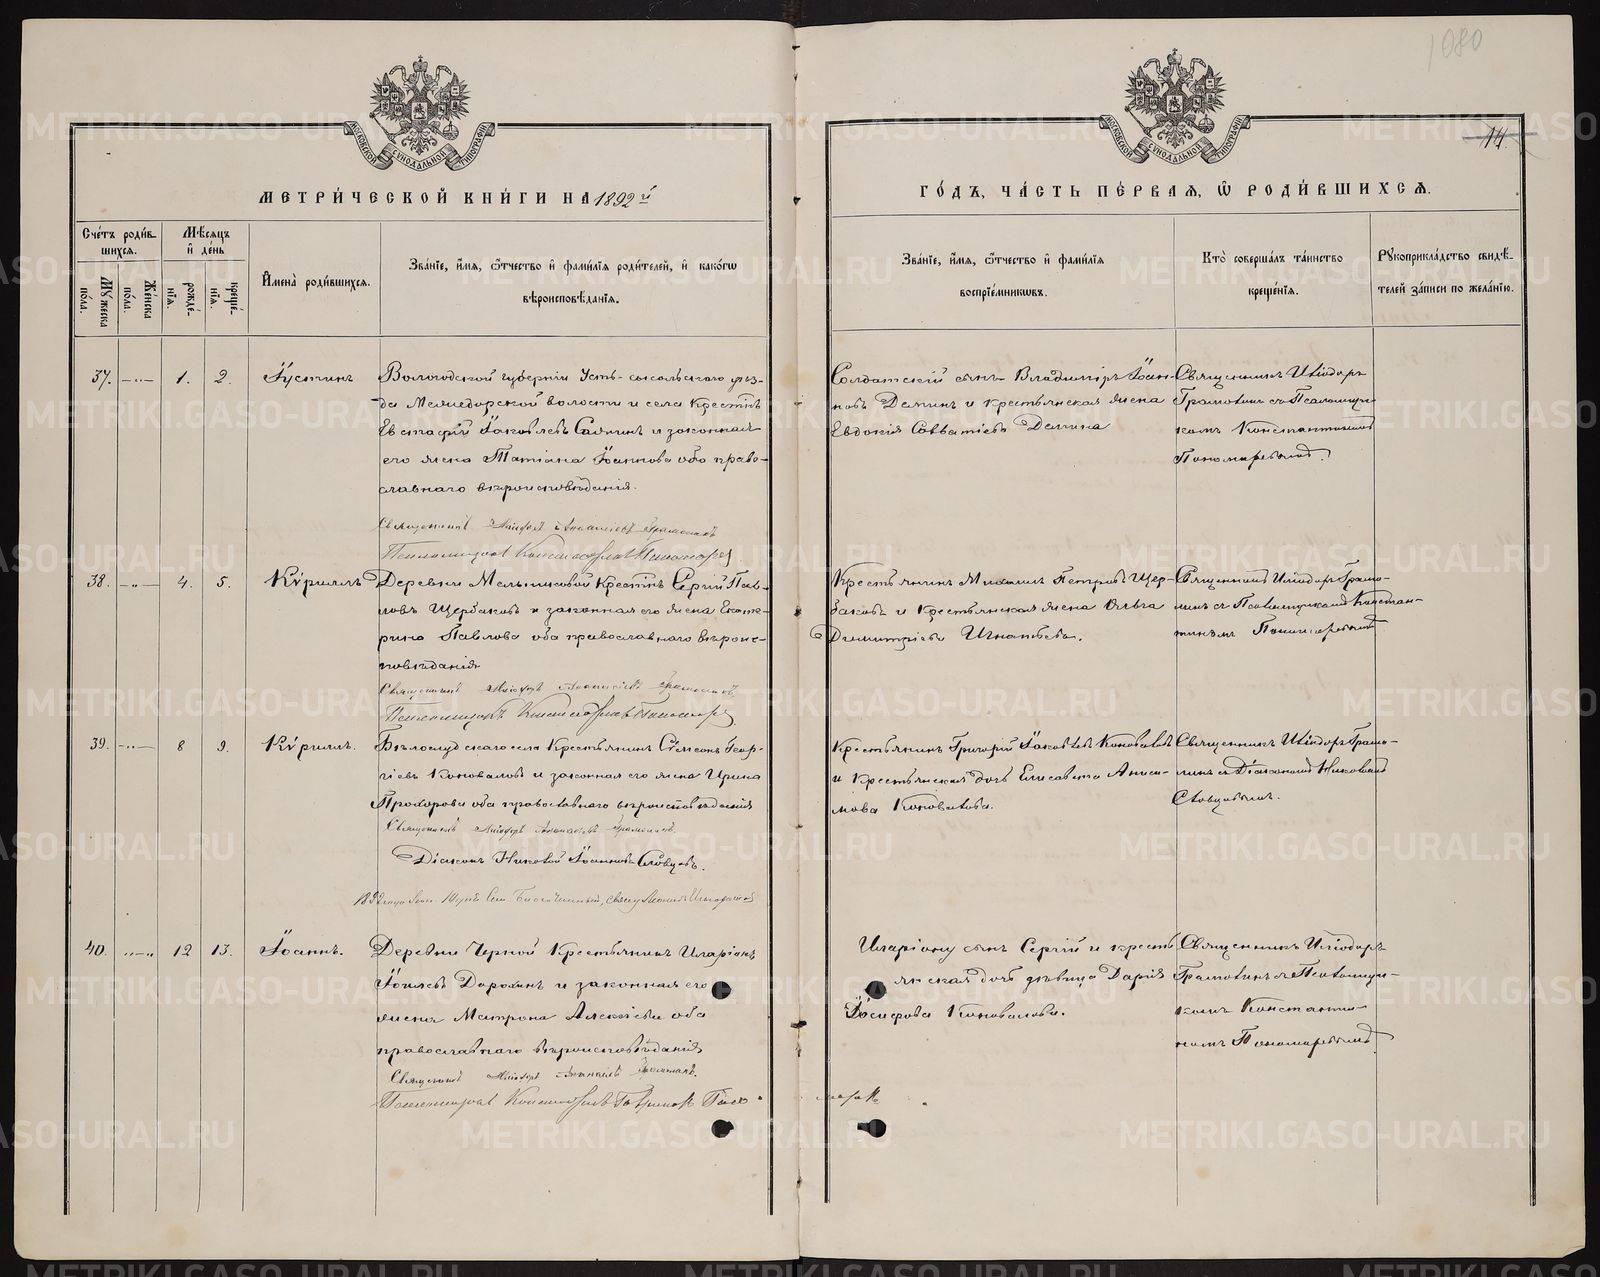 1080
14.
МОСКОВСКОЙ СѴНОДАЛЬНОЙ ТИПОГРАФІИ
МОСКОВСКОЙ СѴНОДАЛЬНОЙ ТИПОГРАФІИ
МЕТРИ́ЧЕСКОЙ КНИ́ГИ НА 1892 й
ГО́ДЪ, ЧА́СТЬ ПЕ́РВАЯ, Ѡ РОДИ́ВШИХСЯ.
Сче́тъ роди́в-
шихся.
Му́жеска по́ла.
Же́нска по́ла.
Мѣ́сяцъ
и҆ де́нь
рожде́-
нїя.
креще́-
нїя.
И҆мена̀ роди́вшихся.
Зва́нїе, и҆́мя, ѻ҆́тчество и҆ фами́лїя роди́телей, и҆ како́гѡ
вѣроисповѣ́данїя.
Зва́нїе, и҆́мя, ѻ҆́тчество и҆ фами́лїя
воспрїе́мникѡвъ.
Кто̀ соверша́лъ та́инство
креще́нїя.
Рꙋкоприкла́дство свидѣ́-
телей за́писи по жела́нїю.
37. —"— 1. 2. Іустинъ
Вологодской губерніи Усть-сысольскаго уѣз-
да волости и села Крестнъ
Евстафій Іаковлевъ и законная
его жена Татіана Іоаннова оба право-
славнаго вѣроисповѣданія.
Священникъ Грамолинъ
Псаломщикъ Константинъ Пономарев
Солдатскій сынъ Владиміръ Іоан-
новъ Деминъ и крестьянская жена
Евдокія Савватіева Демина
Священникъ
съ Псаломщи-
комъ Константиномъ
Пономаревымъ.
38. —"— 4. 5. Кѵриллъ
Деревни Мельниковой Крестнъ Сергій Пав-
ловъ Щербаковъ и законная его жена Екате-
рина Павлова оба православнаго вѣроис-
повѣданія
Священникъ
Псаломщикъ Константинъ Пономарев
Крестьянинъ Михаилъ Петровъ Щер-
баковъ и Крестьянская жена Ольга
Димитріева Игнатьева.
Священникъ
съ Псаломщикомъ Констан-
тиномъ Пономаревымъ
39. —"— 8 9. Кѵриллъ.
Бѣлослудскаго села Крестьянинъ Сѵмеонъ Геор-
гіевъ Коноваловъ и законная его жена Ирина
Прохорова оба православнаго вѣроисповѣданія
Священникъ
Діаконъ Николай Іоанновъ Словцовъ.
Крестьянинъ Григорій Іаковлевъ Коноваловъ
и Крестьянская дочь Елисавета Аниси-
мова Коновалова.
Священникъ
съ Діакономъ Николаемъ
Словцовымъ.
40. "—" 12 13. Іоаннъ.
Деревни Черной Крестьянинъ Иларіонъ
Іоилевъ и законная его
жена Матрона Алексіева оба
православнаго вѣроисповѣданія
Священникъ
Псаломщикъ Константинъ Поно-
марев
Иларіону сынъ Сергій и кресть-
янская дочь дѣвица Дарія
Іосифова Коновалова.
Священникъ
съ Псаломщи-
комъ Константи-
номъ Пономаревымъ
METRIKI.GASO-URAL.RU